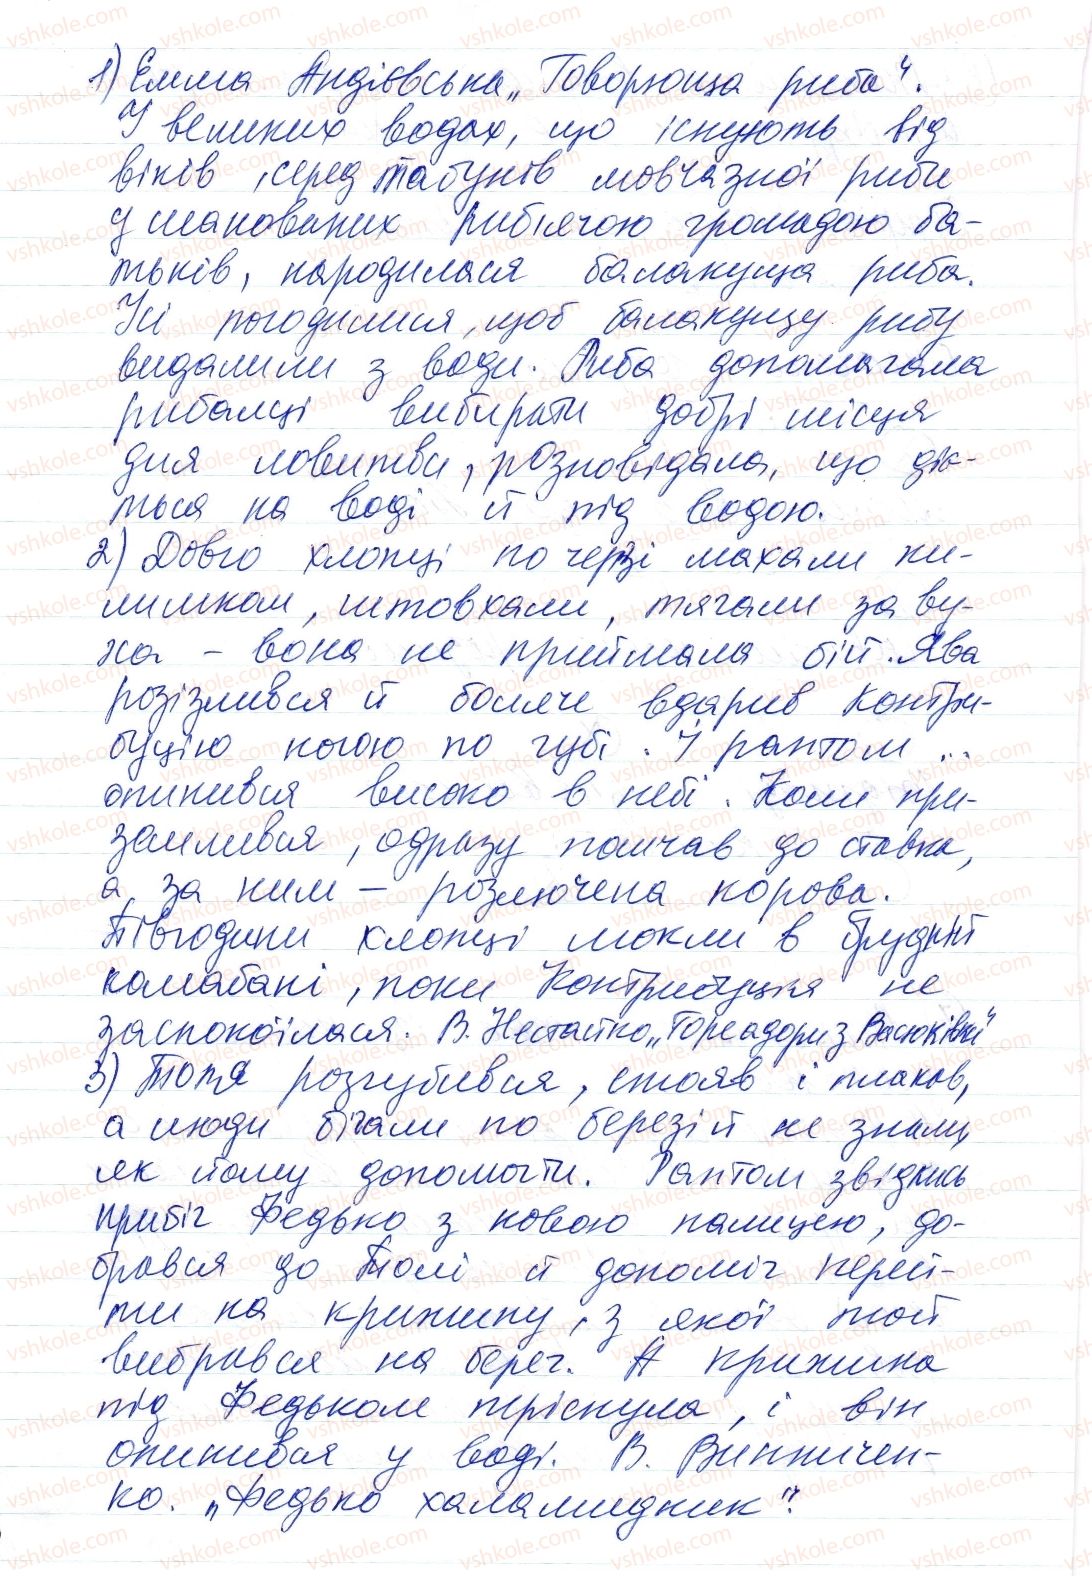 1) Емма Андієвська „Говорюща риба".
У великих водах, що існують від
віків, серед табунів мовчазної риби
у шанованих риб'ячою громадою ба-
тьків, народилася балакуща риба.
Усі погодилися, щоб балакущу рибу
видалили з води. Риба допомагала
рибалці вибирати добрі місця
для ловитви, розповідала, що діє-
ться на воді й під водою.
2) Довго хлопці по черзі махали ки-
лимком, штовхали, тягали за ву-
ха – вона не приймала бій. Ява
розізлився й боляче вдарив Контри-
буцію ногою по губі. І раптом ...
опинився високо в небі. Коли при-
землився, одразу помчав до ставка,
а за ним – розлючена корова.
Півгодини хлопці мокли в брудній
калабані, поки Контрибуція не
заспокоїлася. В. Нестайко „Тореадори з Васюківки"
3) Толя розгубився, стояв і плакав,
а люди бігали по березі й не знали,
як йому допомогти. Раптом звідкись
прибіг Федько з новою палицею, до-
брався до Толі й допоміг перей-
ти на крижину, з якої той
вибрався на берег. А крижина
під Федьком тріснула, і він
опинився у воді. В. Винничен-
ко. „Федько халамидник".